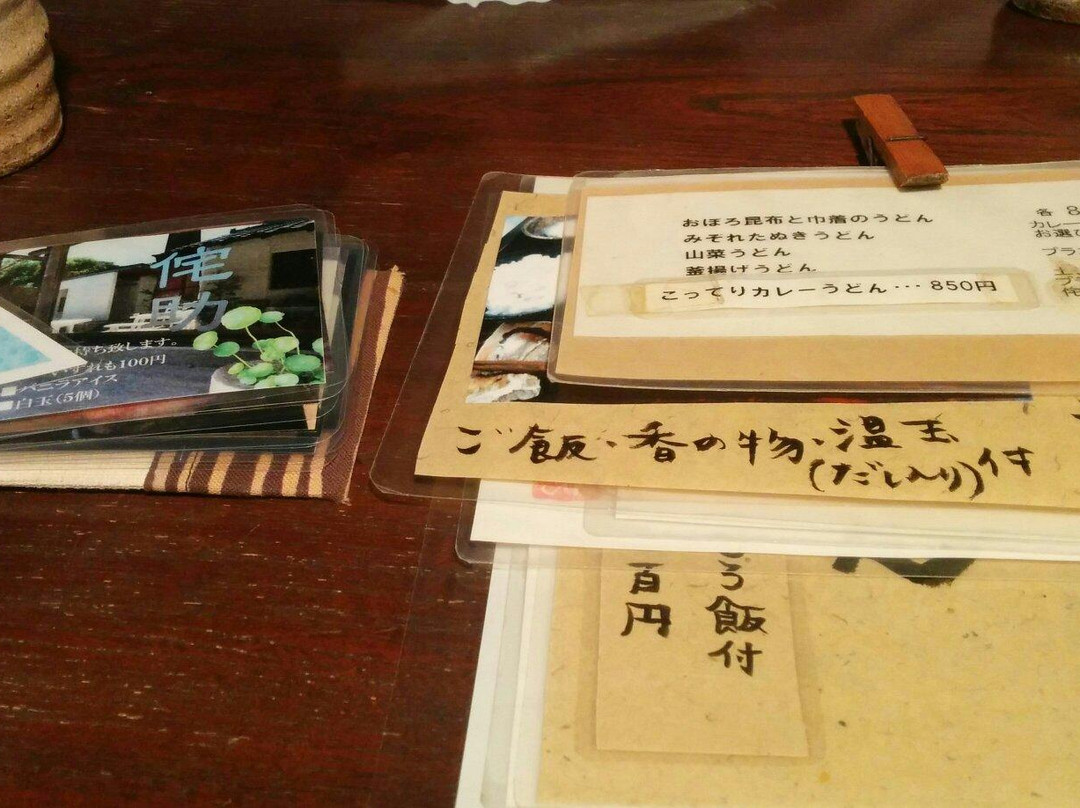 侘助
待ち致します。
ずれも100円
バニラアイス
白玉(5個)
おぼろ昆布と巾着のうどん
みぞれたぬきうどん
山菜うどん
釜揚げうどん
こってりカレーうどん・・・850円
各 8
カレー
お選び
ブラ
ご飯、香の物、温玉
(だし入り)付
ろ飯付
百円